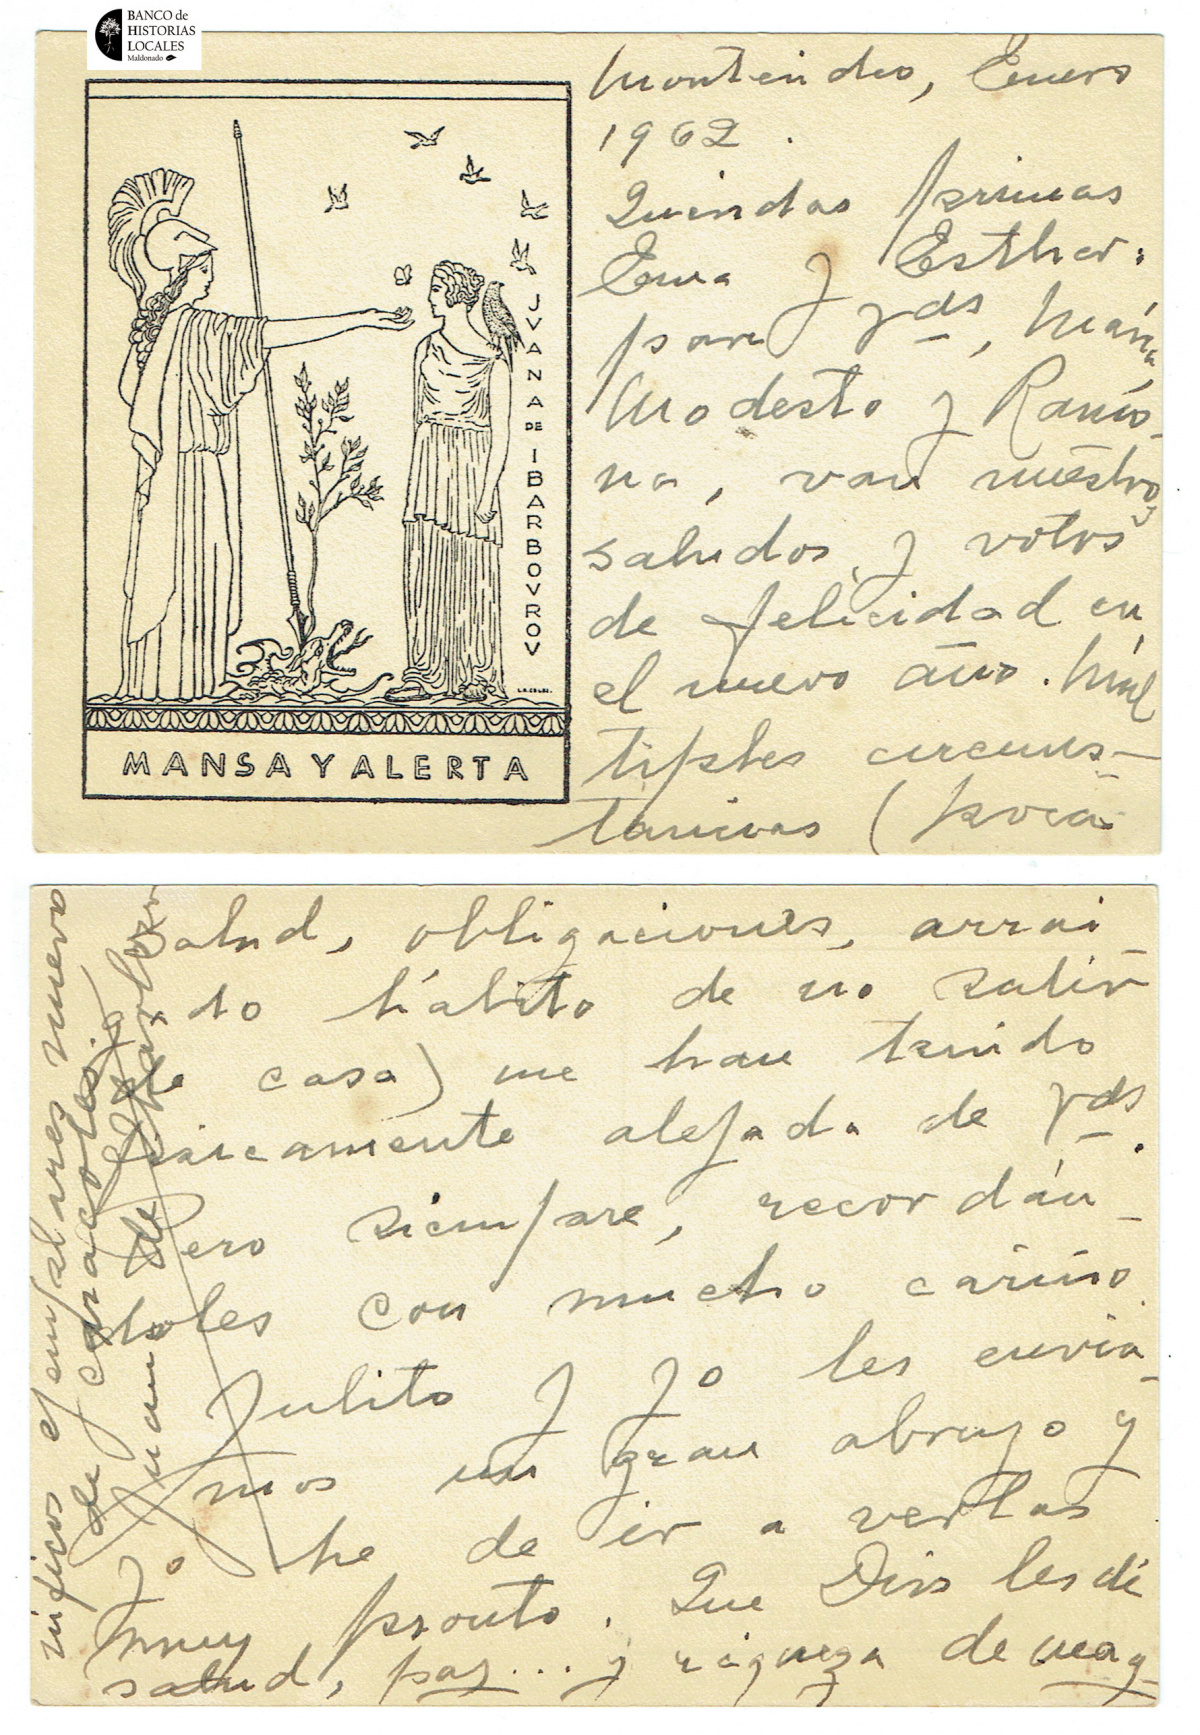 BANCO de
HISTORIAS
LOCALES
Maldonado
JVANA DE IBARBOVROV
MANSA Y ALERTA
Montevideo, Enero
1962.
Queridas primas
Ema y Esther:
para Vds, María,
Modesto y Ramo-
na, van nuestros
saludos y votos
de felicidad en
el nuevo año. Múl
tiples circuns-
tancias (poca
salud, obligaciones, arrai-
ado hábito de no salir
de casa) me han tenido
físicamente alejada de Vds.
Pero siempre, recordán-
doles con mucho cariño
Julito y yo les envia-
mos un gran abrazo y
yo he de ir a verlas
muy pronto. Que Dios les dé
salud, paz... y riqueza de mag
níficos ejemplares nuevo
de caracoles.
Juana de Ibarbourou